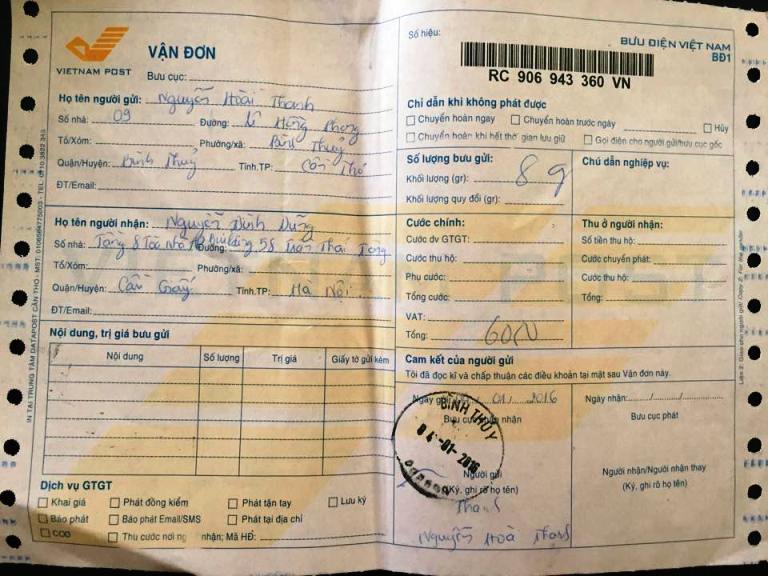 VIETNAM POST
VẬN ĐƠN
Bưu cục:
Họ tên người gửi: Nguyễn Hoài Thanh
Số nhà: 09 Đường: Lê Hồng Phong
Tổ/Xóm: Phường/xã: Bình Thuỷ
Quận/Huyện: Bình Thuỷ Tỉnh.TP: Cần Thơ
ĐT/Email:
Họ tên người nhận: Nguyễn Đình Dũng
Số nhà: Tầng 8 Toà Nhà Building 58 Trần Thái Tông Đường:
Tổ/Xóm: Phường/xã:
Quận/Huyện: Cầu Giấy Tỉnh.TP: Hà Nội
ĐT/Email:
Nội dung, trị giá bưu gửi
Nội dung Số lượng Trị giá Giấy tờ gửi kèm
Dịch vụ GTGT
Khai giá Phát đồng kiểm Phát tận tay Lưu ký
Báo phát Báo phát Email/SMS Phát tại địa chỉ
COD Thu cước nơi người nhận; Mã HĐ:
Số hiệu:
BƯU ĐIỆN VIỆT NAM
BĐ1
RC 906 943 360 VN
Chỉ dẫn khi không phát được
Chuyển hoàn ngay Chuyển hoàn trước ngày Hủy
Chuyển hoàn khi hết thời gian lưu giữ Gọi điện cho người gửi/bưu cục gốc
Số lượng bưu gửi: Chú dẫn nghiệp vụ:
Khối lượng (gr): 8g
Khối lượng quy đổi (gr):
Cước chính: Thu ở người nhận:
Cước dv GTGT: Số tiền thu hộ:
Cước thu hộ: Cước chuyển phát:
Phụ cước: Cước thu hộ:
Tổng cước: Tổng:
VAT:
Tổng:
Cam kết của người gửi
Tôi đã đọc kĩ và chấp thuận các điều khoản tại mặt sau Vận đơn này.
Ngày gửi 01/2016 Ngày nhận: / /
BÌNH THỦY
Bưu cục nhận Bưu cục phát
04-01-2016
Người gửi Người nhận/Người nhận thay
(Ký, ghi rõ họ tên) (Ký, ghi rõ họ tên)
Thanh
Nguyễn Hoài Thanh